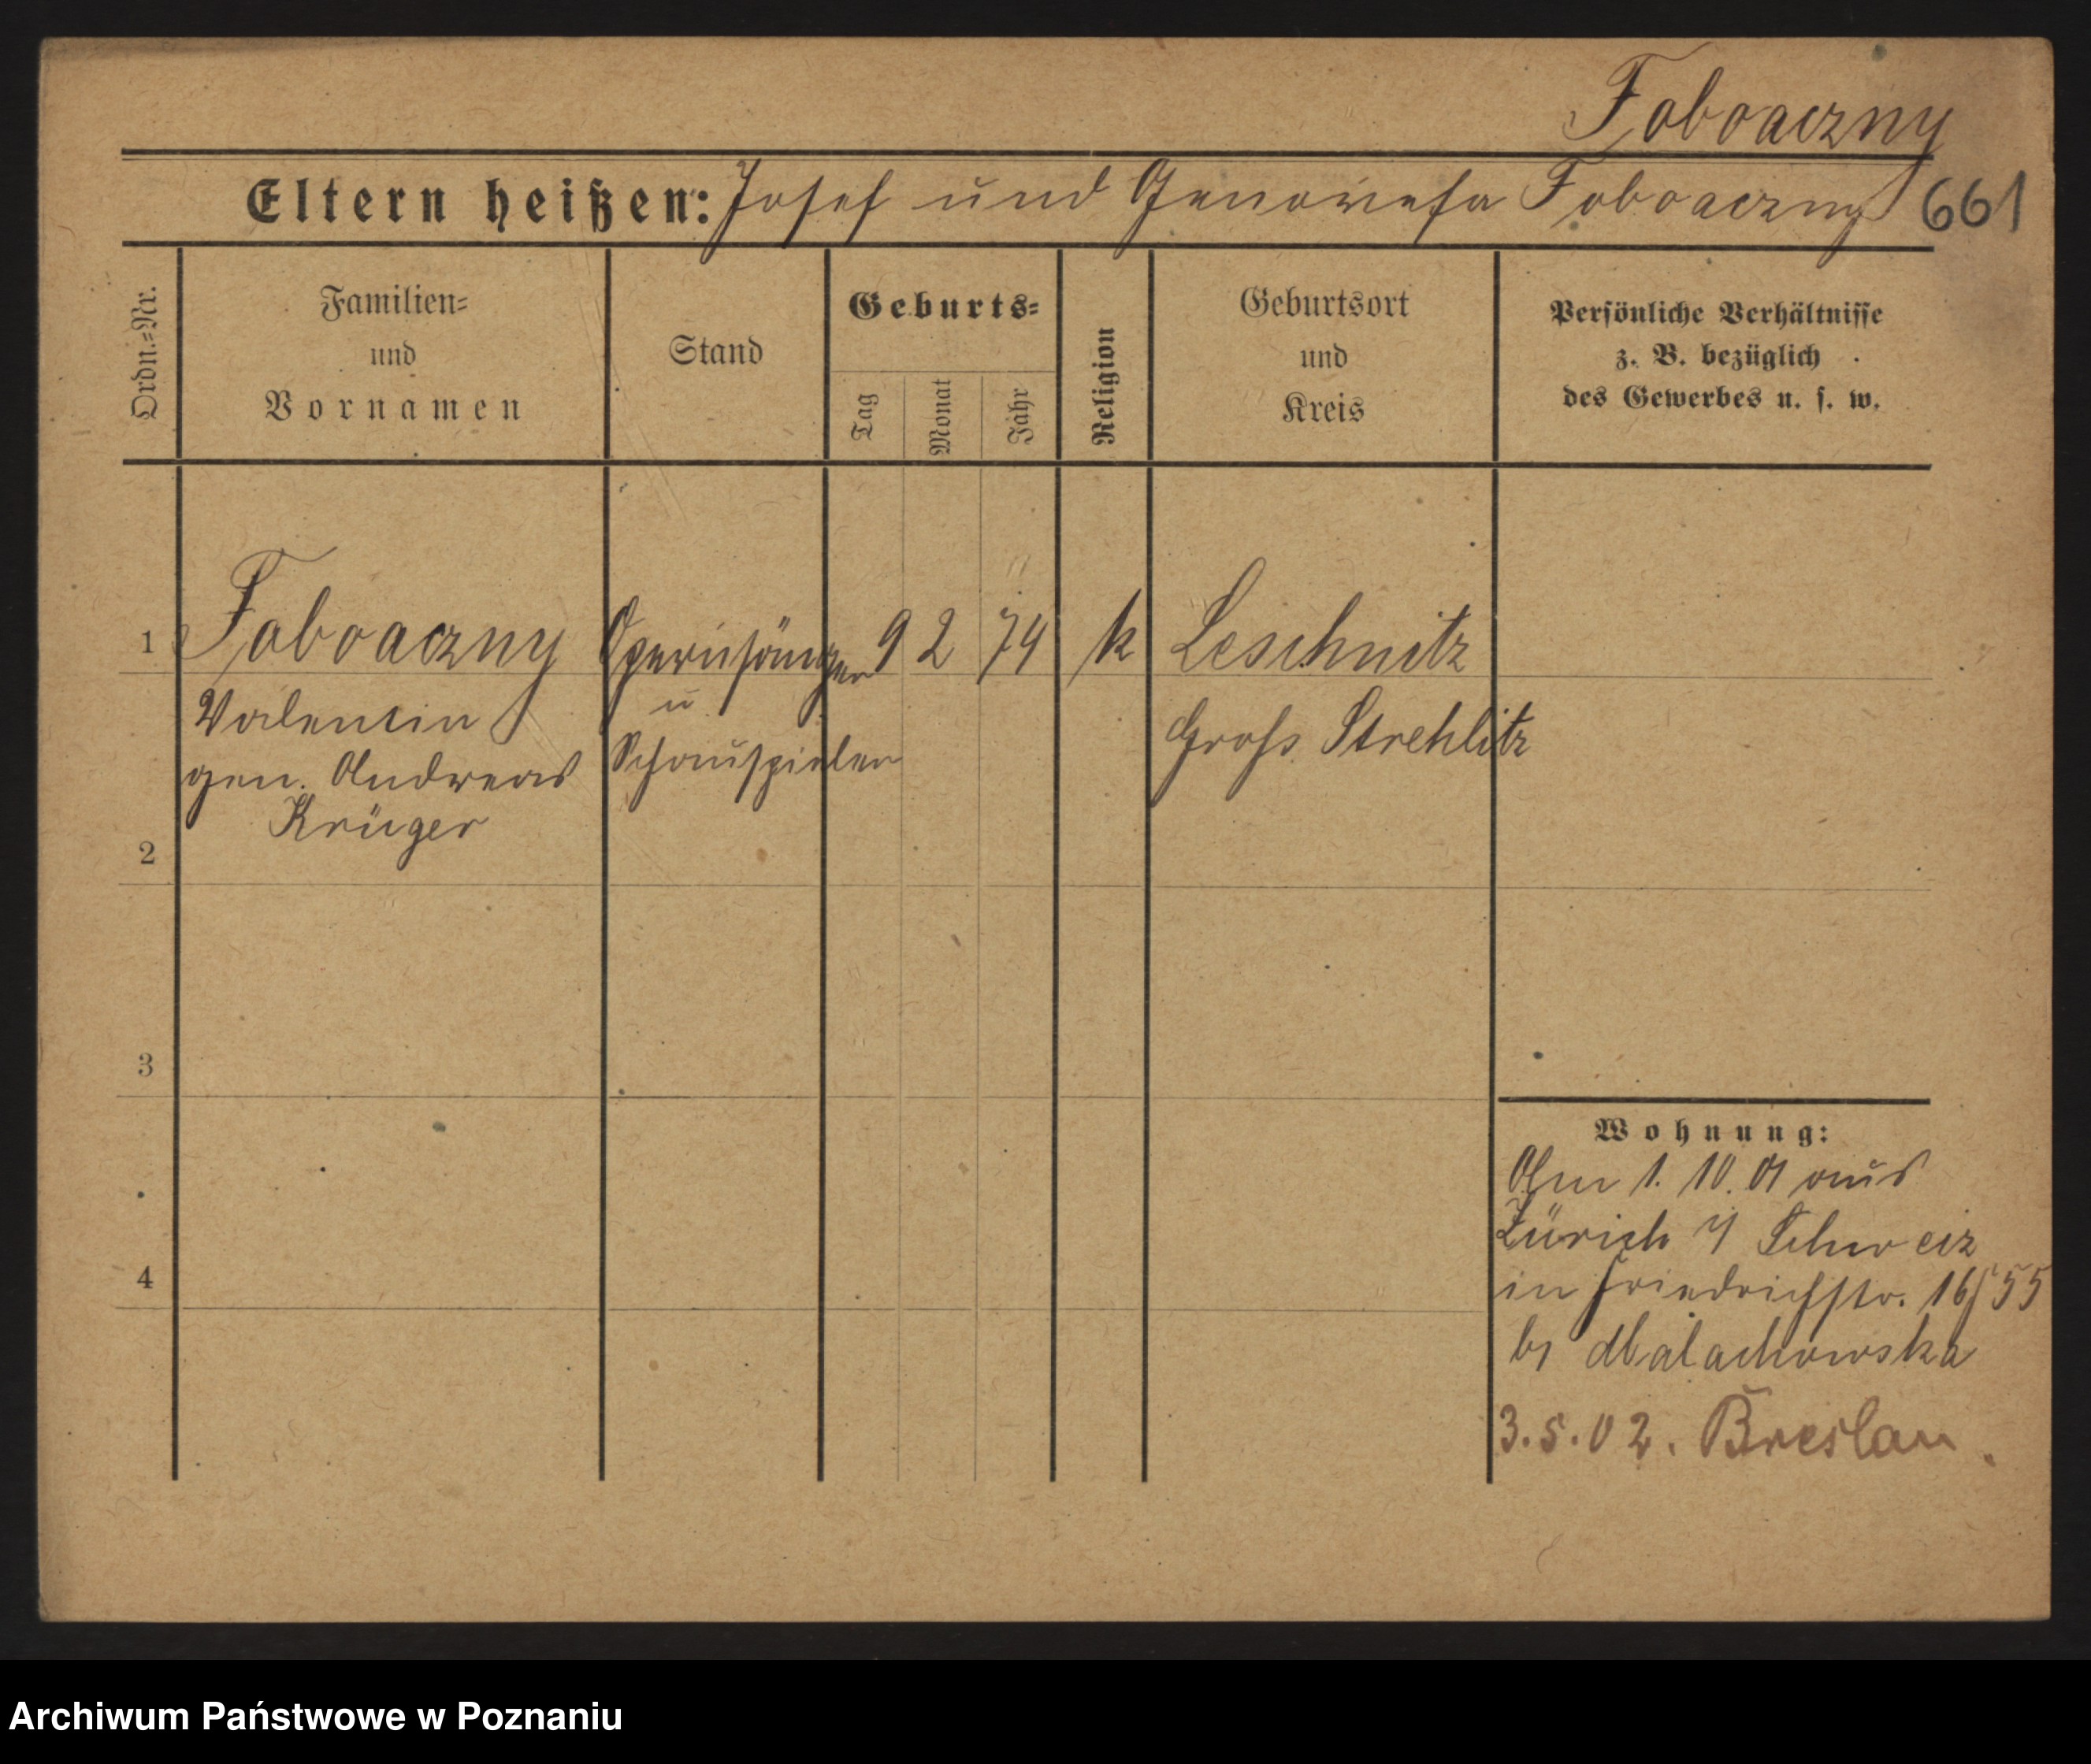 Foboaczny
Eltern heißen: Josef und Genowefa Foboaczny 661
Ordn.=Nr.
Familien=
und
Vornamen
Stand
Geburts=
Tag
Monat
Jahr
Religion
Geburtsort
und
Kreis
Persönliche Verhältnisse
z. B. bezüglich
des Gewerbes u. s. w.
1 Foboaczny Opernsänger 9 2 74 k Leschnitz
Valentin u Gross Strehlitz
gen. Andreas Schauspieler
Krüger
2
3
4
Wohnung:
Am 1. 10. 01 aus
Zürich i/ Schweiz
in Friedrichstr. 16/55
b/ Malachowska
3.5.02. Breslau.
Archiwum Państwowe w Poznaniu